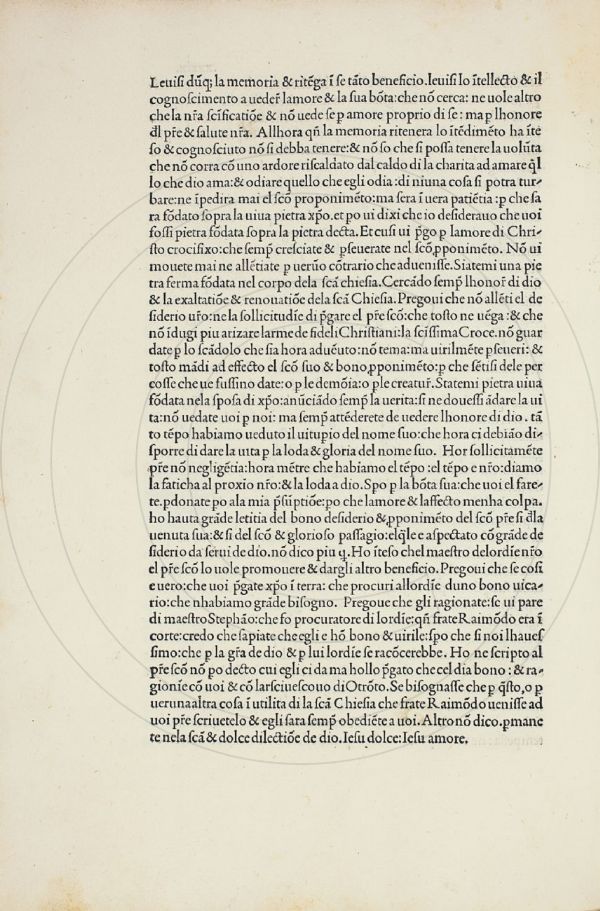 Leuisi dūq; la memoria & ritēga ī se tāto beneficio. leuisi lo ītellecto & il
cognoscimento a uederͬ lamore & la sua bōta: che nō cerca: ne uole altro
che la nr̄a scīficatiōe & nō uede se ꝑ amore proprio di se : ma ꝑ lhonore
dl pr̄e & salute nr̄a. Allhora qn̄ la memoria ritenera lo ītēdimēto ha īte
so & cognosciuto nō si debba tenere: & nō so che si possa tenere la uolūta
che nō corra cō uno ardore riscaldato dal caldo di la charita ad amare q̄l
lo che dio ama: & odiare quello che egli odia : di niuna cosa si potra tur-
bare: ne īpedira mai el scō proponimēto: ma sera ī uera patiētia : ꝑ che sa
ra fōdato sopra la uiua pietra xp̄o. et po ui dixi che io desiderauo che uoi
fossi pietra fōdata sopra la pietra decta. Et cusi ui p̄go ꝑ lamore di Chri-
sto crocifixo: che semꝑ cresciate & ꝑseuerate nel scō, ꝓponimēto. Nō ui
mouete mai ne allētiate ꝑ ueruo cōtrario che aduenisse. Siatemi una pie
tra ferma fōdata nel corpo dela scā chiesia. Cercādo semꝑ lhonor di dio
& la exaltatiōe & renouatiōe dela scā Chiesia. Pregoui che nō allēti el de
siderio ur̄o: ne la sollicitudīe di p̄gare el pr̄e scō: che tosto ne uēga : & che
nō īdugi piu a rizare larme de fideli Christiani: la scīssima Croce. nō guar
date ꝑ lo scādolo che sia hora aduēuto: nō tema: ma uirilmēte ꝑseueri : &
tosto mādi ad effecto el scō suo & bono, ꝓponimēto: ꝑ che sētisi dele per
cosse che ue fussino date: o ꝑ le demōia: o ꝑ le creatur̄. Statemi pietra uiua
fōdata nela sposa di xp̄o: anūciādo semꝑ la uerita: si ne douessi ādare la ui
ta: nō uedate uoi ꝑ noi: ma semꝑ attēderete de uedere lhonore di dio. tā
to tēpo habiamo ueduto il uitupio del nome suo: che hora ci debiāo di-
sporre di dare la uita ꝑ la loda & gloria del nome suo. Hor sollicitamēte
pr̄e nō negligētia: hora mētre che habiamo el tēpo : el tēpo e nr̄o: diamo
la faticha al proxio nr̄o: & la loda a dio. Spo ꝑ la bōta sua: che uoi el fare-
te. ꝑdonate po ala mia p̄sūptiōe: po che lamore & laffecto menha colpa.
ho hauta grāde letitia del bono desiderio & ꝓponimēto del scō pr̄e si dl̄la
uenuta sua: & si del scō & glorioso passagio: elq̄le e aspectato cō grāde de
siderio da serui de dio. nō dico piu q. Ho īteso chel maestro delordīe nr̄o
el pr̄e scō lo uole promouere & dargli altro beneficio. Pregoui che se cosi
e uero: che uoi p̄gate xp̄o ī terra: che procuri allordīe duno bono uica-
rio: che nhabiamo grāde bisogno. Pregoue che gli ragionate: se ui pare
di maestro Stephāo: che fo procuratore di lordīe: qn̄ frate Raimōdo era ī
corte: credo che sapiate che egli e hō bono & uirile: spo che si noi lhauess
simo: che ꝑ la gr̄a de dio & ꝑ lui lordīe se racōcerebbe. Ho ne scripto al
pr̄e scō nō po decto cui egli ci da ma hollo p̄gato che cel dia bono : & ra-
gionīe cō uoi & cō larsciuescouo di Otrōto. Se bisognasse che ꝑ q̄sto, o ꝑ
ueruna altra cosa ī utilita di la scā Chiesia che frate Raimōdo uenisse ad
uoi pr̄e scriuetelo & egli sara semꝑ obediēte a uoi. Altro nō dico. ꝑmane
te nela scā & dolce dilectiōe de dio. Iesu dolce: Iesu amore.